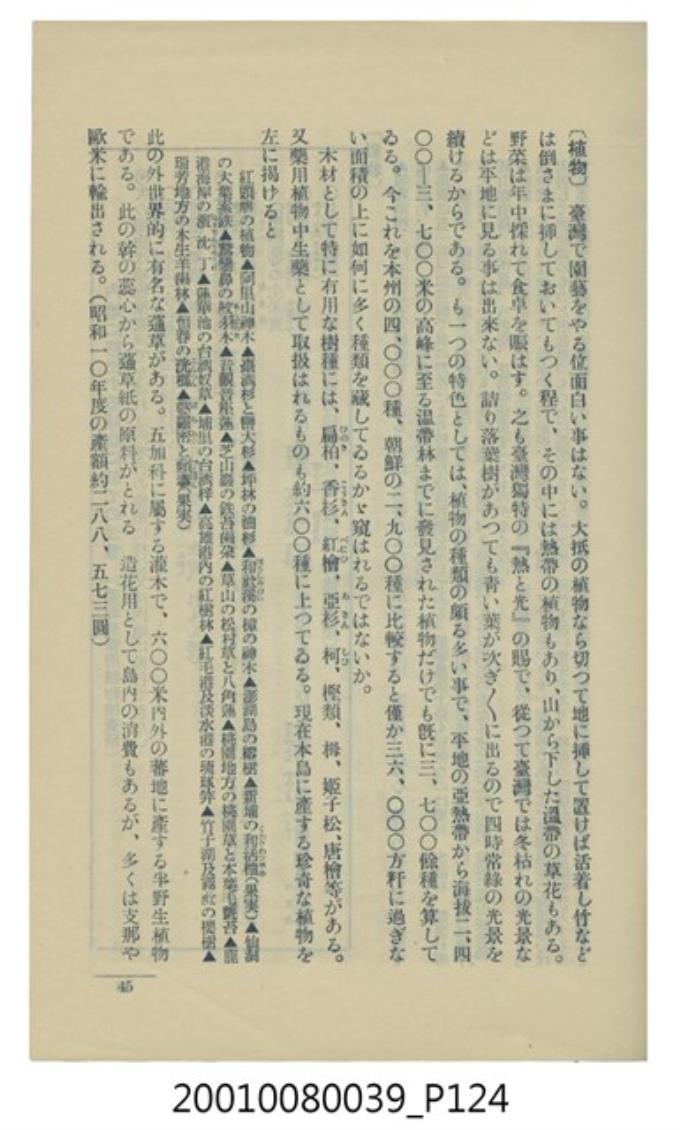 〔植物〕　臺灣で園藝をやる位面白い事はない。大抵の植物なら切つて地に挿して置けば活着し竹など
は倒さまに挿しておいてもつく程で、その中には熱帶の植物もあり、山から下した溫帶の草花もある。
野菜は年中採れて食卓を賑はす。之も臺灣獨特の『熱と光』の賜で、從つて臺灣では冬枯れの光景な
どは平地に見る事は出來ない。詰り落葉樹があつても靑い葉が次ぎ〱に出るので四時常綠の光景を
續けるからである。も一つの特色としては、植物の種類の頗る多い事で、平地の亞熱帶から海拔二、四
〇〇―三、七〇〇米の高峰に至る溫帶林までに發見された植物だけでも旣に三、七〇〇餘種を算して
ゐる。今これを本州の四、〇〇〇種、朝鮮の二、九〇〇種に比較すると僅か三六、〇〇〇方粁に過ぎな
い面積の上に如何に多く種類を藏してゐるかゞ窺はれるではないか。
木材として特に有用な樹種には、扁柏、香杉、紅檜、亞杉、柯、樫類、栂、姬子松、唐檜等がある。
又藥用植物中生藥として取扱はれるものも約六〇〇種に上つてゐる。現在本島に産する珍奇な植物を
左に揭げると
紅頭嶼の植物▲阿里山神木▲臺灣杉と巒大杉▲坪林の油杉▲和社溪の樟の神木▲澎湖島の榕樹▲新埔の(果実)▲仙洞
の大葉蘇鉄▲鵞鑾鼻の▲芝山巖の鉄苔▲草山の松村草と八角蓮▲桃園地方の桃園草と▲鹿
港海岸の▲蓮華池の台湾奴草▲埔里の台湾▲高雄港内の紅樹林▲紅毛港及淡水港の琉球▲竹子湖及霧社の櫻樹▲
瑞芳地方の木生羊歯林▲恒春の▲(果実)
此の外世界的に有名な蓪草がある。五加科に屬する灌木で、六〇〇米內外の蕃地に産する半野生植物
である。此の幹の蕊心から蓪草紙の原料がとれる　造花用として島內の消費もあるが、多くは支那や
歐米に輸出される。(昭和一〇年度の産額約二八八、五七三圓)
45
20010080039_P124